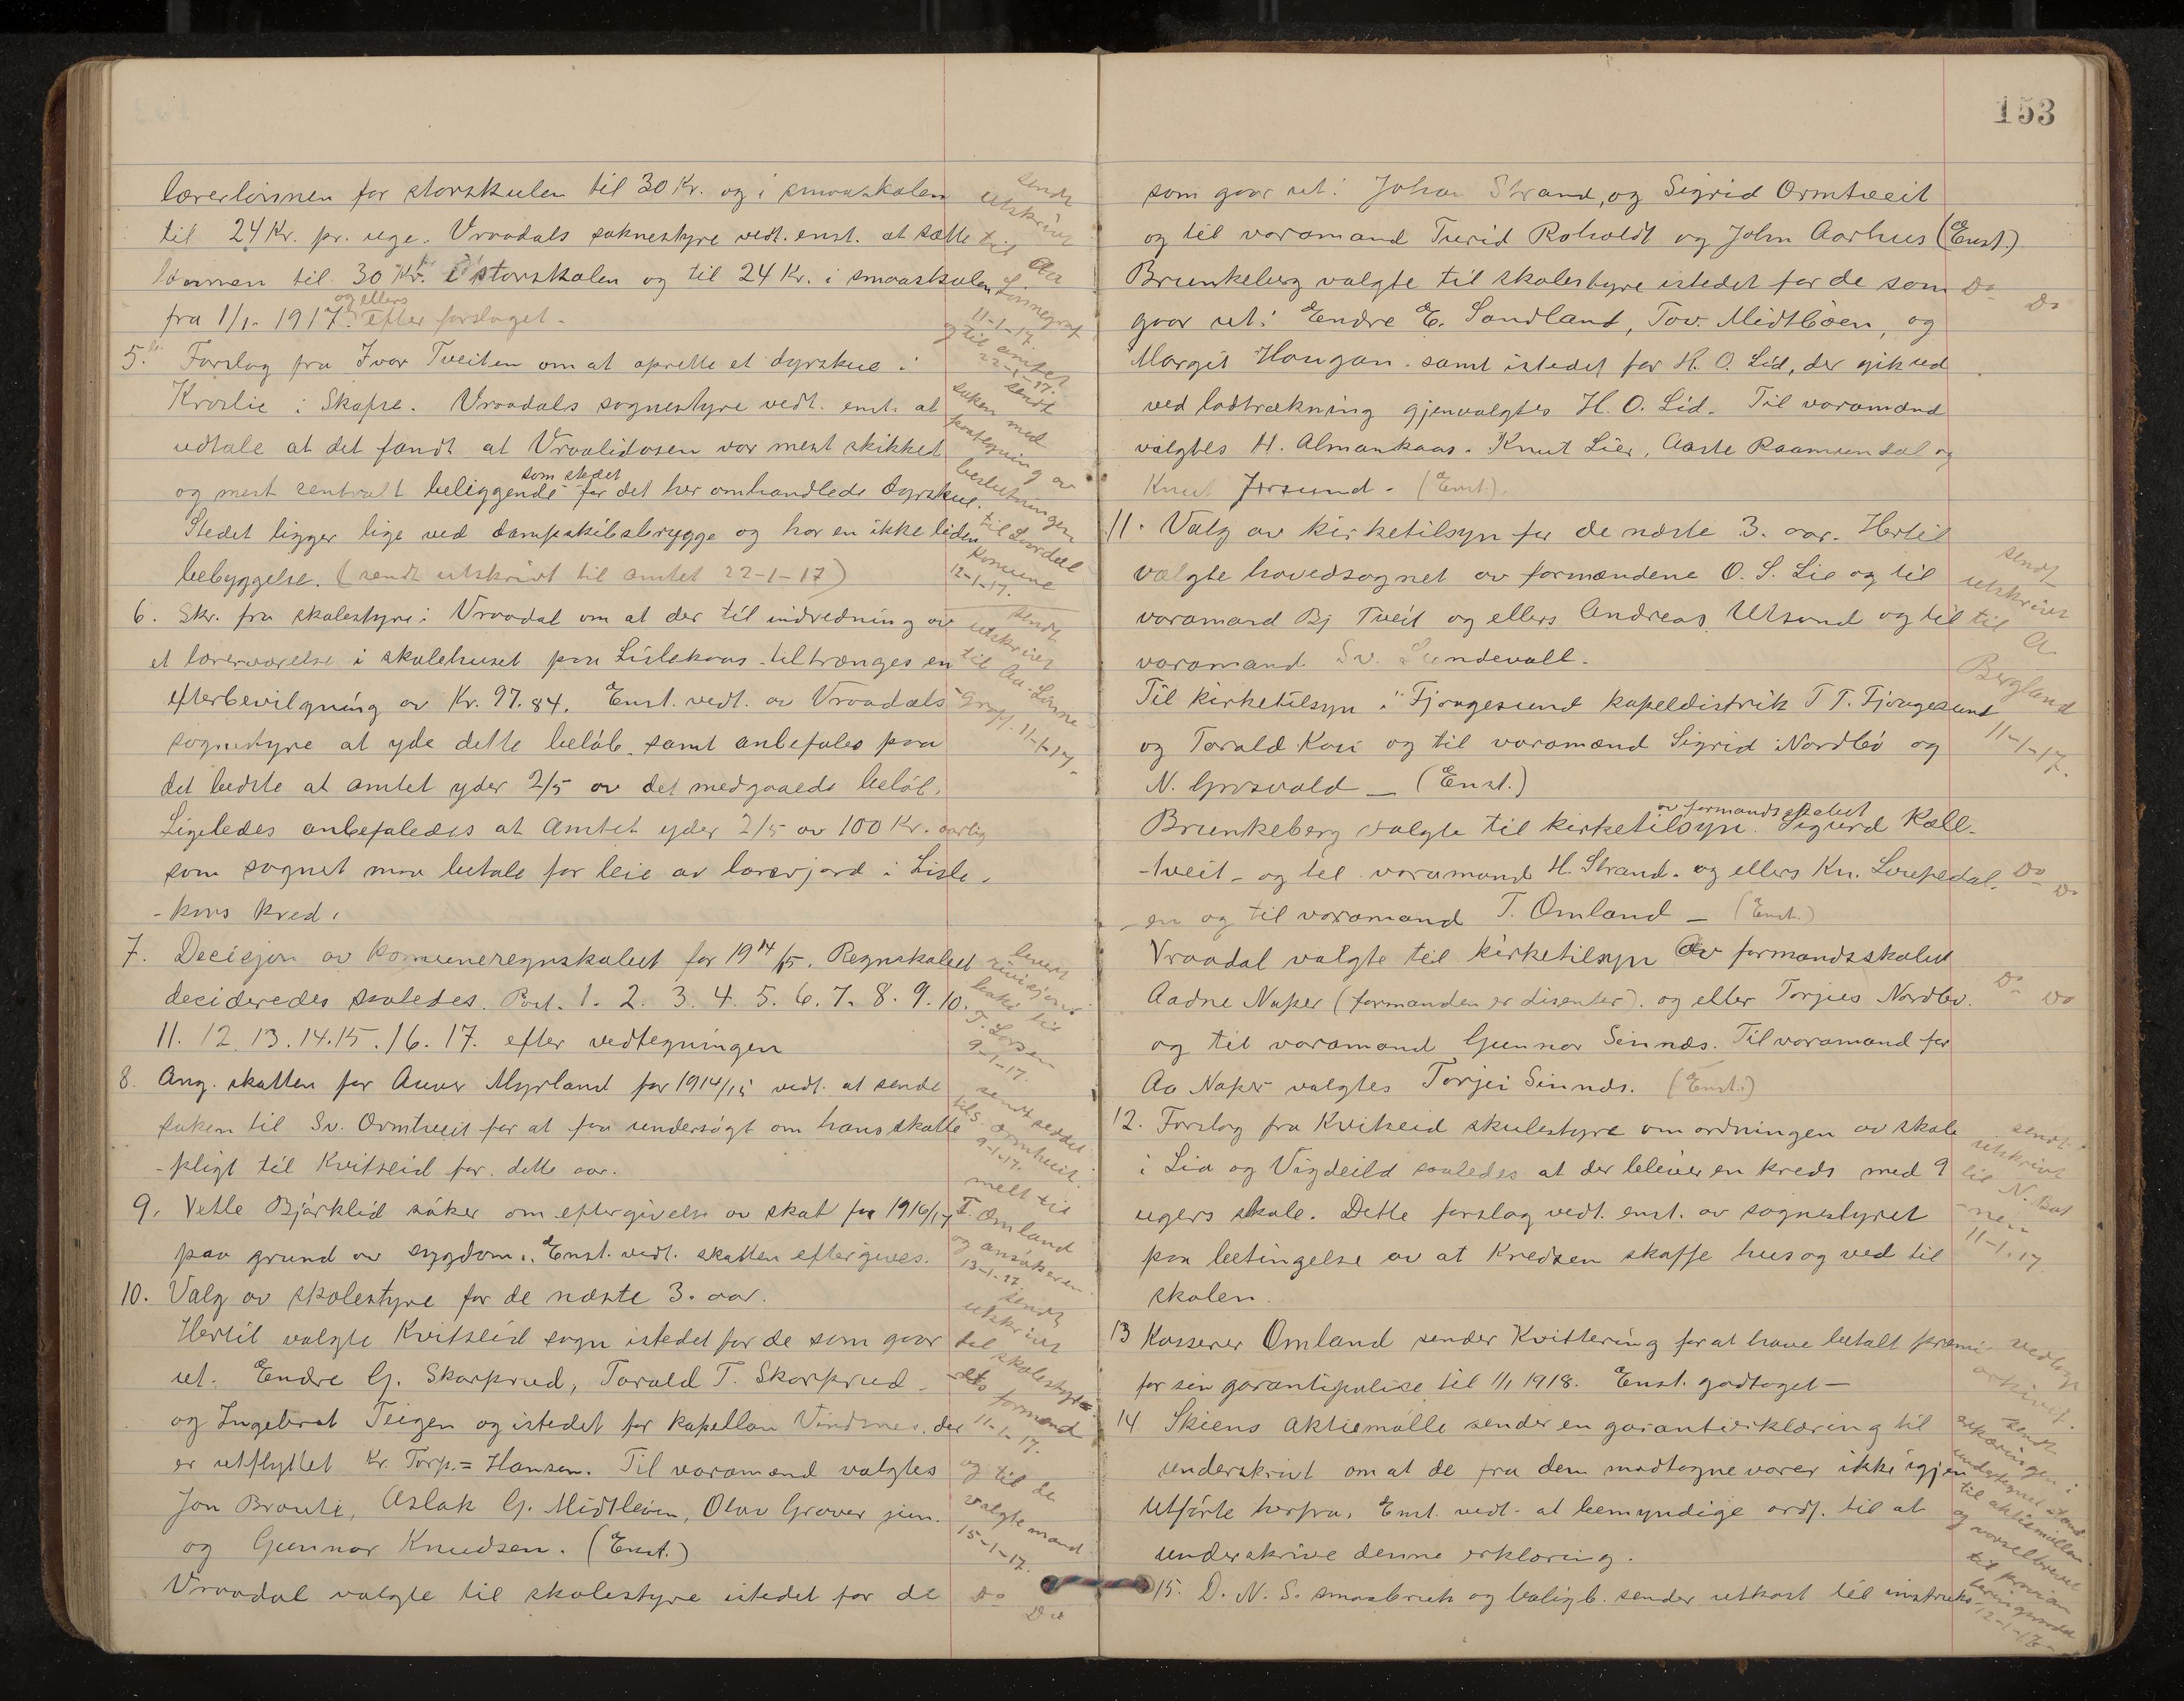 lærerlønnen for storskulen til 30 Kr. og i smaaskolen
til 24 Kr. pr. uge. Vraadals soknestyre vedt. enst. at sætte
lønnen til 30 Kr. i storskolen og til 24 Kr. i smaaskolen
og ellers
fra 1/1- 1917. Efter forslaget.
5. Forslag fra Ivar Tveiten om at oprette et dyrskue i
Kroslie i Skafse. Vraadals sognestyre vedt. enst. at
udtale at det fandt at Vraalidosen var mest skikket
som stedet
og mest sentralt beliggende for det her omhandlede dyrskue.
Stedet ligger lige ved dampskibsbrygge og har en ikke liden
bebyggelse. (sendt utskrivt til amtet 22-1-17)
6. Skr. fra skolestyre i Vraadal om at der til indredning av
et lærerværelse i skolehuset paa Lislekaas tiltrænges en
efterbevilgning av Kr. 97.84. Enst. vedt. av Vraadals
sognestyre at yde dette beløb, samt anbefales paa
det bedste at amtet yder 2/5 av det medgaaede beløb.
Ligeledes anbefaledes at Amtet yder 2/5 av 100 Kr. aarlig
som sognet maa betale for leie av lærerjord i Lisle-
-kaas kred.
7. Decisjon av Komuneregnskabet for 1914/15. Regnskabet
decideredes saaledes. Post. 1. 2. 3. 4. 5. 6. 7. 8. 9. 10.
11. 12. 13. 14. 15. 16. 17. efter vedtegningen
8. Ang. skatten for Anver Myrland for 1914/15 vedt. at sende
saken til Sv. Ormtveit for at faa undersøgt om hans skatte
-pligt til Kvitseid for dette aar.
9. Vetle Bjørklid søker om eftergivelse av skat for 1916/17
paa grund av sygdom. Enst. vedt. skatten eftergives.
10. Valg av skolestyre for de næste 3. aar.
Hertil valgte Kvitseid sogn istedet for de som gaar
ut. Endre G. Skarprud, Torald T. Skarprud
og Ingebret Teigen og istedet for kapellan Vindsnes, der
er utflyttet Kr. Torp.=Hansen. Til varamænd valgtes
Jon Brauti, Aslak G. Midtbøen, Olav Graver jun.
og Gunnar Knudsen. (Enst.)
Vraadal valgte til skolestyre istedet for de
sendt
utskrivt
til
Aa
Linnegraf
11-1-17.
og til amtet
22-1-17.
sendt
saken med
paategning av
beslutningen
til Laurdal
komune
12-1-17.
sendt
utskrivt
til Aa. Linne
-graff. 11-1-17.
levert
T. Lorsen
9-1-17
sendt seddel
til S. Ormtveit.
9-1-17.
melt til
T. Omland
og ansøkeren
13-1-17.
sendt
utskrivt
til skolestyr=
-ets formand
11-1-17.
og til de
valgte mænd
15-1-17.
Do Do
153
som gaar ut: Johan Strand, og Sigrid Ormtveit
og til varamænd Turid Roholdt og John Aarhus (Enst.)
Brunkeberg valgte til skolestyre istedet for de som
gaar ut: Endre E. Sandland, Tov. Midtbøen, og
Margit Haugan. samt istedet for H. O. Lid, der gik ud
ved lodtrækning gjenvalgtes H. O. Lid. Til varamænd
valgtes H. Almankaas. Knut Lier, Aaste Raamundal og
Knut Jørsund. (Enst.).
11. Valg av kirketilsyn for de næste 3. aar. Hertil
valgte hovedsognet av formændene O. S. Lie og til
varamand Bj Tveit og ellers Andreas Utsund og til
varamand Sv. Sundevall.
Til kirketilsyn i Fjaagesund kapeldistrik T T. Fjaagesund
og Torald Kasi og til varamænd Sigrid Nordbø og
N. Grosvold — (Enst.)
av formandskabet
Brunkeberg valgte til kirketilsyn. Sigurd Kall-
-tveit - og til varamand H. Strand. og ellers Kn. Loupedal-
-en og til varamand T. Omland — (Enst.)
Vraadal valgte til kirketilsyn av formandsskabet
Aadne Naper (formanden er disenter). og eller Torjus Nordbø.
og til varamand Gunnar Sinnds. Til varamand for
Aa Naper valgtes Torjei Sinnds. (Enst.)
12. Forslag fra Kvitseid skulestyre om ordningen av skole
i Lia og Vigdeild saaledes at der bliver en kreds med 9
ugers skole. Dette forslag vedt. enst. av sognestyret
paa betingelse av at Kredsen skaffe hus og ved til
skolen.
13 Kasserer Omland sender Kvittering for at have betalt præmi
for sin garantipolise til 1/1 1918. Enst. godtaget —
14. Skiens Aktiemølle sender en garantierklæring til
underskrivt om at de fra dem modtagne varer ikke igjen
utføres herfra. Enst. vedt. at bemyndige ordf. til at
underskrive denne erklæring.
15. D. N. S. smaabruk og boligb. sender utkast til instruks
Do Do
sendt
utskrivt
til
A.
Bergland
11-1-17.
Do Do
Do Do
sendt
utskrivt
til N. Bot
-nen
11-1-17
vedlagt
arkivet.
sendt
erkæringen i
underskrevet stand
til aktiemøllen
12-1-17.